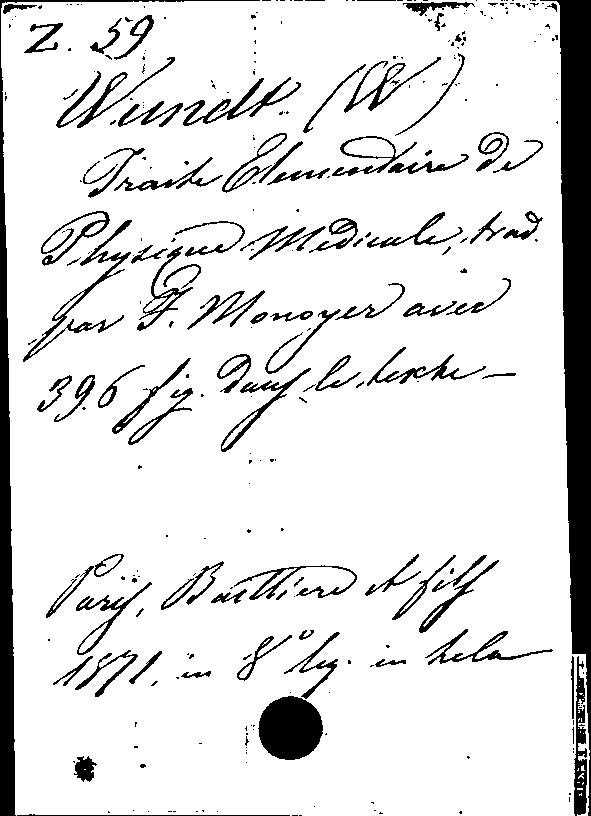 Z. 59
Wundt (W)
Traite Elementaire de
Physique Medicale, trad.
par F. Monoyer avec
396 fig. dans le texte –
Paris, Baillière et fils
1871, in 8° leg. in tela